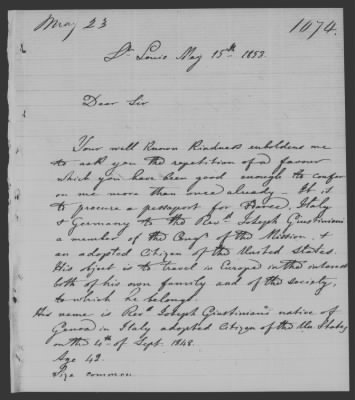 May 23
1074.
St. Louis May 15th 1853.
Dear Sir
Your well known Kindness emboldens me
to ask you the repetition of a favour
which you have been good enough to confer
on me more than once already - It is
to procure a passport for France, Italy
& Germany to the Revd. Joseph Giustiniani
a member of the Cong. of the Mission, &
an adopted Citizen of the United States.
His object is to travel in Europe in the interest
both of his own family and of the society,
to which he belongs.
His name is Revd. Joseph Giustiniani native of
Genoa in Italy adopted Citizen of the Un. States,
on the 4th of Sept. 1848.
Age 42.
Size common